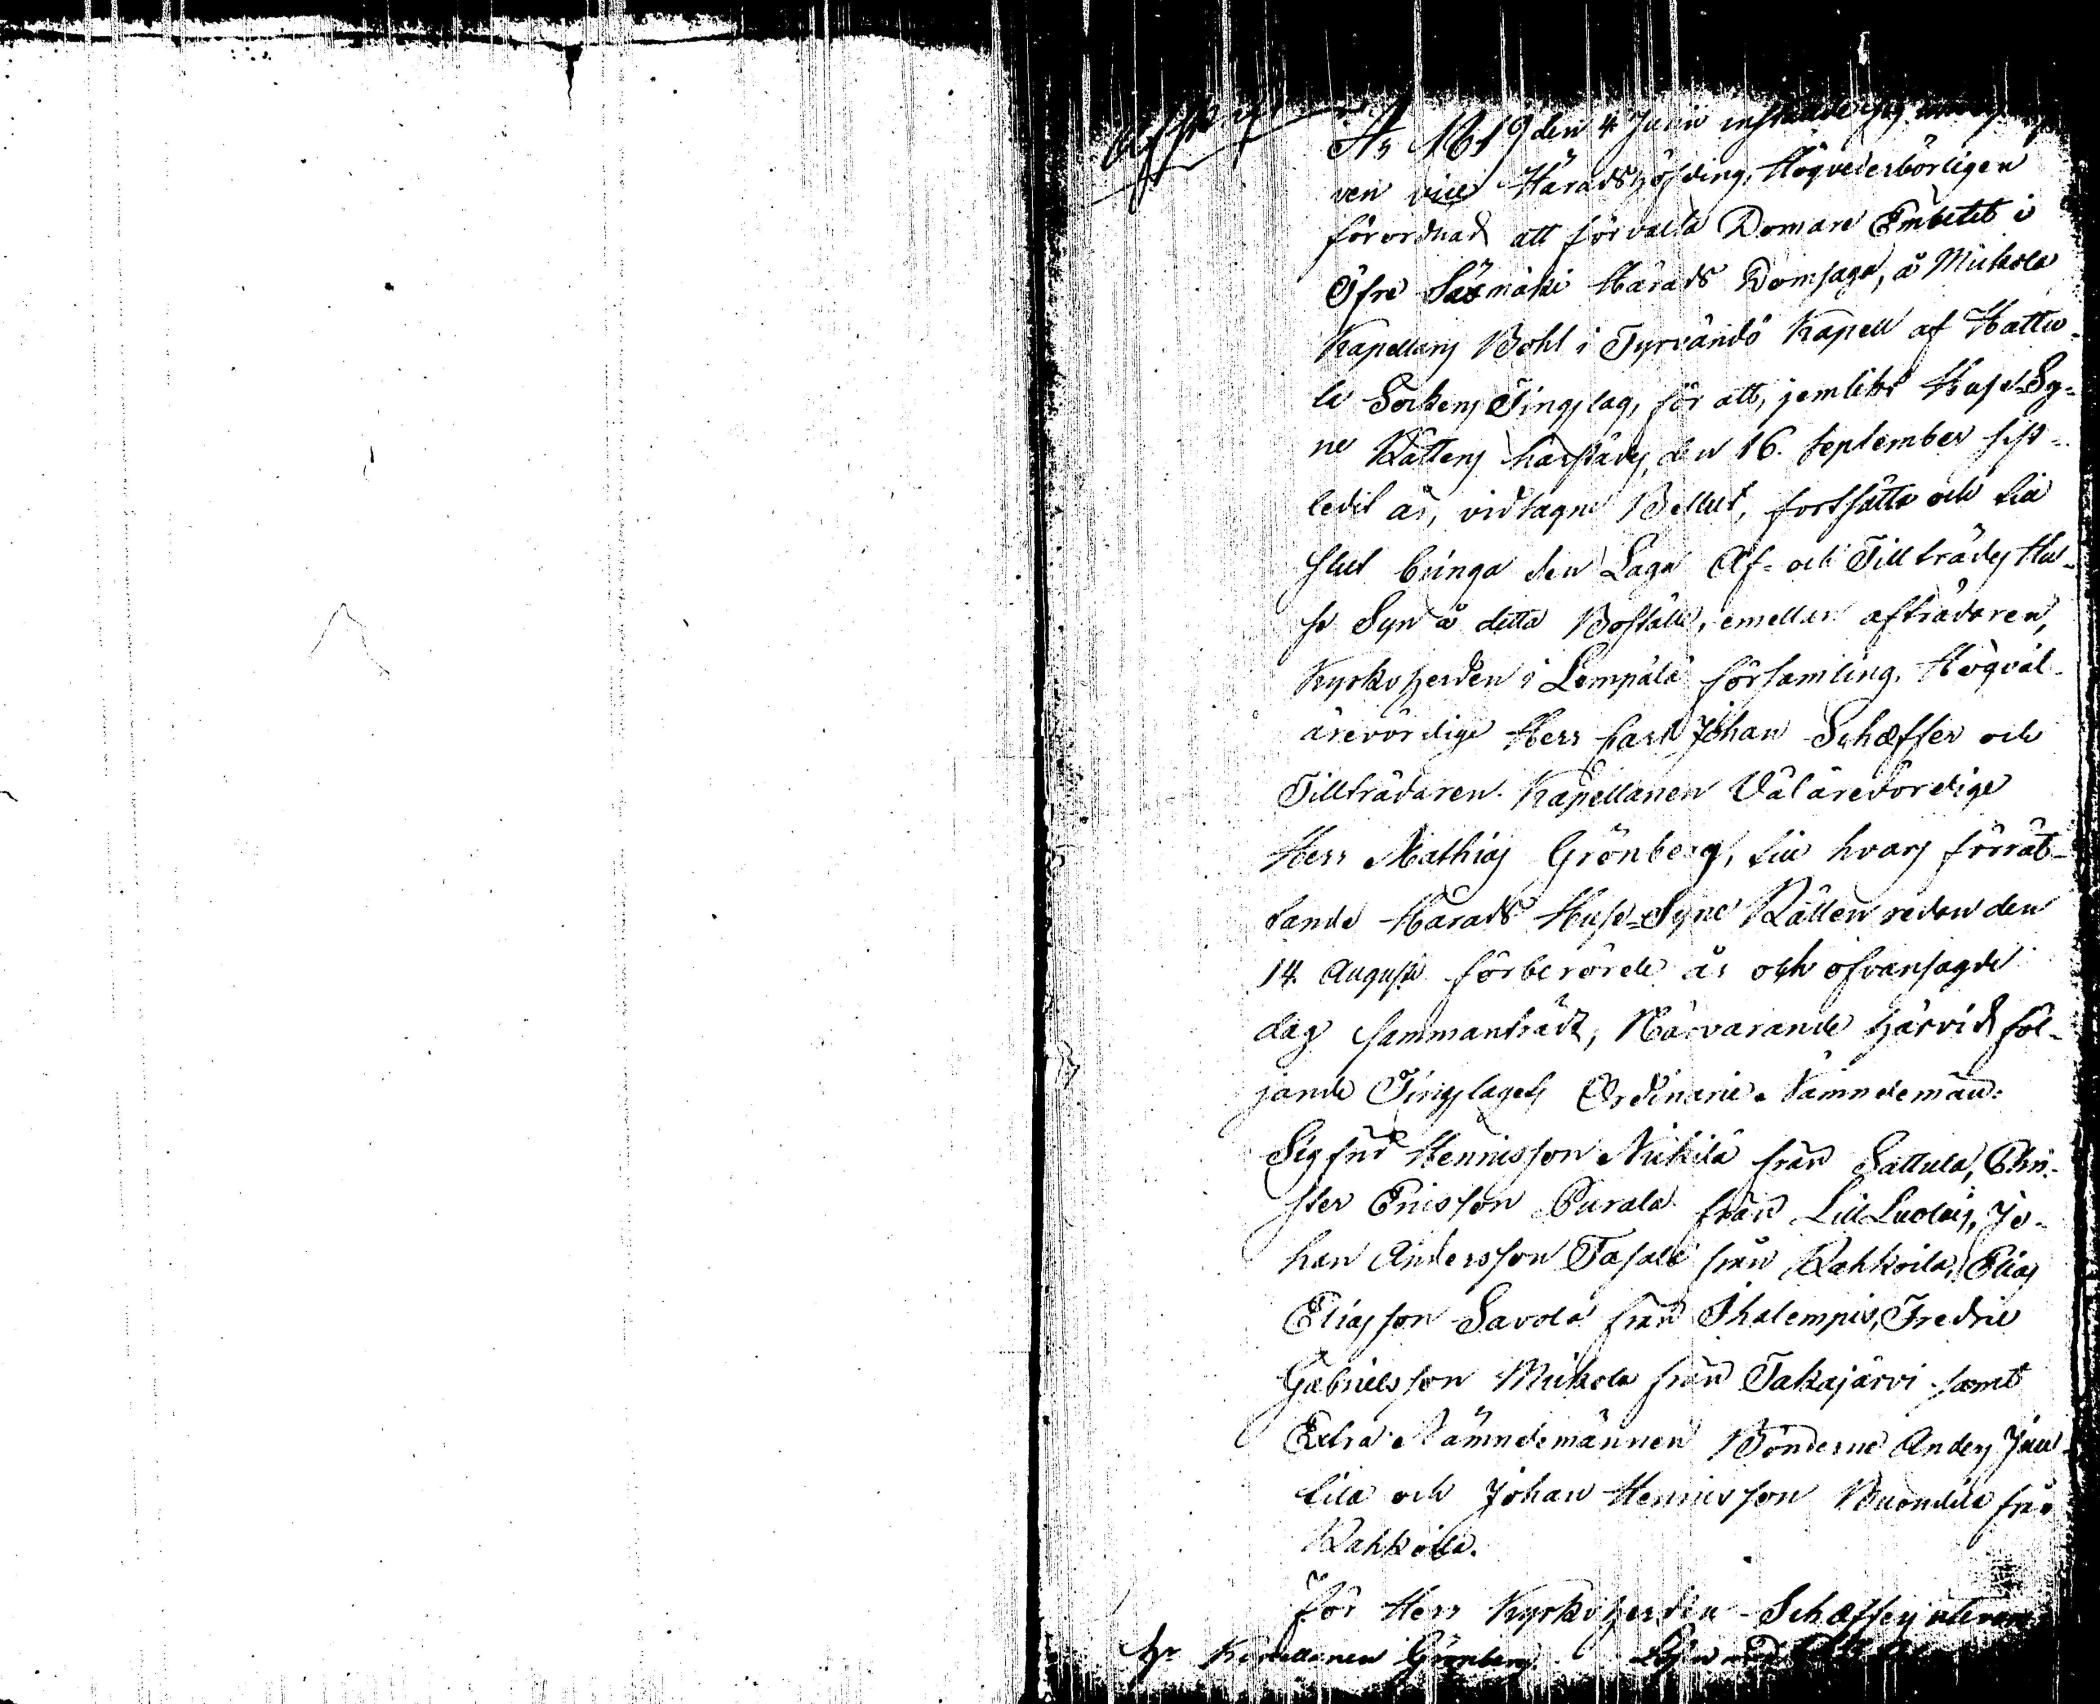 År 1819 den 4 Junii inställde jag
ven vice Häradshöfding, Högvederbörligen
förordnad att förvalta Domare Embetet i
Öfre Säxmäki Härads Domsaga, å Mickola
Kapellans Bohl i Tyrvändö Kapell af Hattu-
la Sockens Tingslag, för att, jemlikt Huse-Sy-
ne Rättens härstädes, den 16. September sist-
ledit år, vidtagne Beslut, fortsätta och till
slut bringa den Laga Af- och Tillträdes Hu-
se Syn å detta Boställe, emellan afträdaren,
Kyrkoherden i Lempälä församling, Högväl-
ärevördige Herr Carl Johan Schæffer och
Tillträdaren Kapellanen Välärevördige
Herr Mathias Grönberg, till hvars förrät-
tande Härads Huse-Syne Rätten redan den
14. Augusti förberörde år och ofvansagde
dag sammanträdt, Närvarande härvid föl-
jande Tingslagets Ordinarie Nämndemän:
Sigfrid Henricsson Nickilä från Sattula, Chri-
ster Ericsson Purala från Lill Luolais, Jo-
han Andersson Tasala från Rahkoila, Elias
Eliasson Savola från Ihalempis, Fredric
Gabrielsson Mickola från Takajärvi samt
Extra Nämndemännen Bönderne Anders Jun-
tila och Johan Henricsson Buomila från
Rahkoila.
För Herr Kyrkoherden Schæffers
Hr Kapellanen Grönberg.